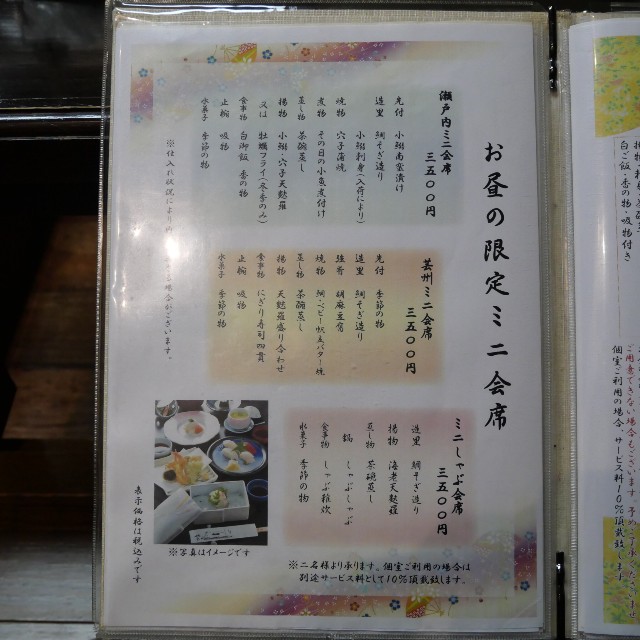 お昼の限定ミニ会席
瀬戸内ミニ会席
三五〇〇円
先付 小鰯南蛮漬け
造里 鯛そぎ造り
小鰯刺身(入荷により)
焼物 穴子蒲焼
煮物 その日の小魚煮付け
蒸し物 茶碗蒸し
揚物 小鰯・穴子天麩羅
又は 牡蠣フライ(冬季のみ)
食事物 白御飯 香の物
止椀 吸物
水菓子 季節の物
芸州ミニ会席
三五〇〇円
先付 季節の物
造里 鯛そぎ造り
強肴 胡麻豆腐
焼物
蒸し物 茶碗蒸し
揚物 天麩羅盛り合わせ
食事物 にぎり寿司四貫
止椀 吸物
水菓子 季節の物
ミニしゃぶ会席
三五〇〇円
造里 鯛そぎ造り
揚物 海老天麩羅
蒸し物 茶碗蒸し
鍋 しゃぶしゃぶ
食事物 しゃぶ雑炊
水菓子 季節の物
※仕入れ状況により
場合がございます。
表示価格は税込みです
※写真はイメージです
※二名様より承ります。個室ご利用の場合は
別途サービス料として10%頂戴致します。
白ご飯・香の物・吸物付き
ご用意できない場合もございます。予め
個室ご利用の場合、サービス料10%頂戴致します